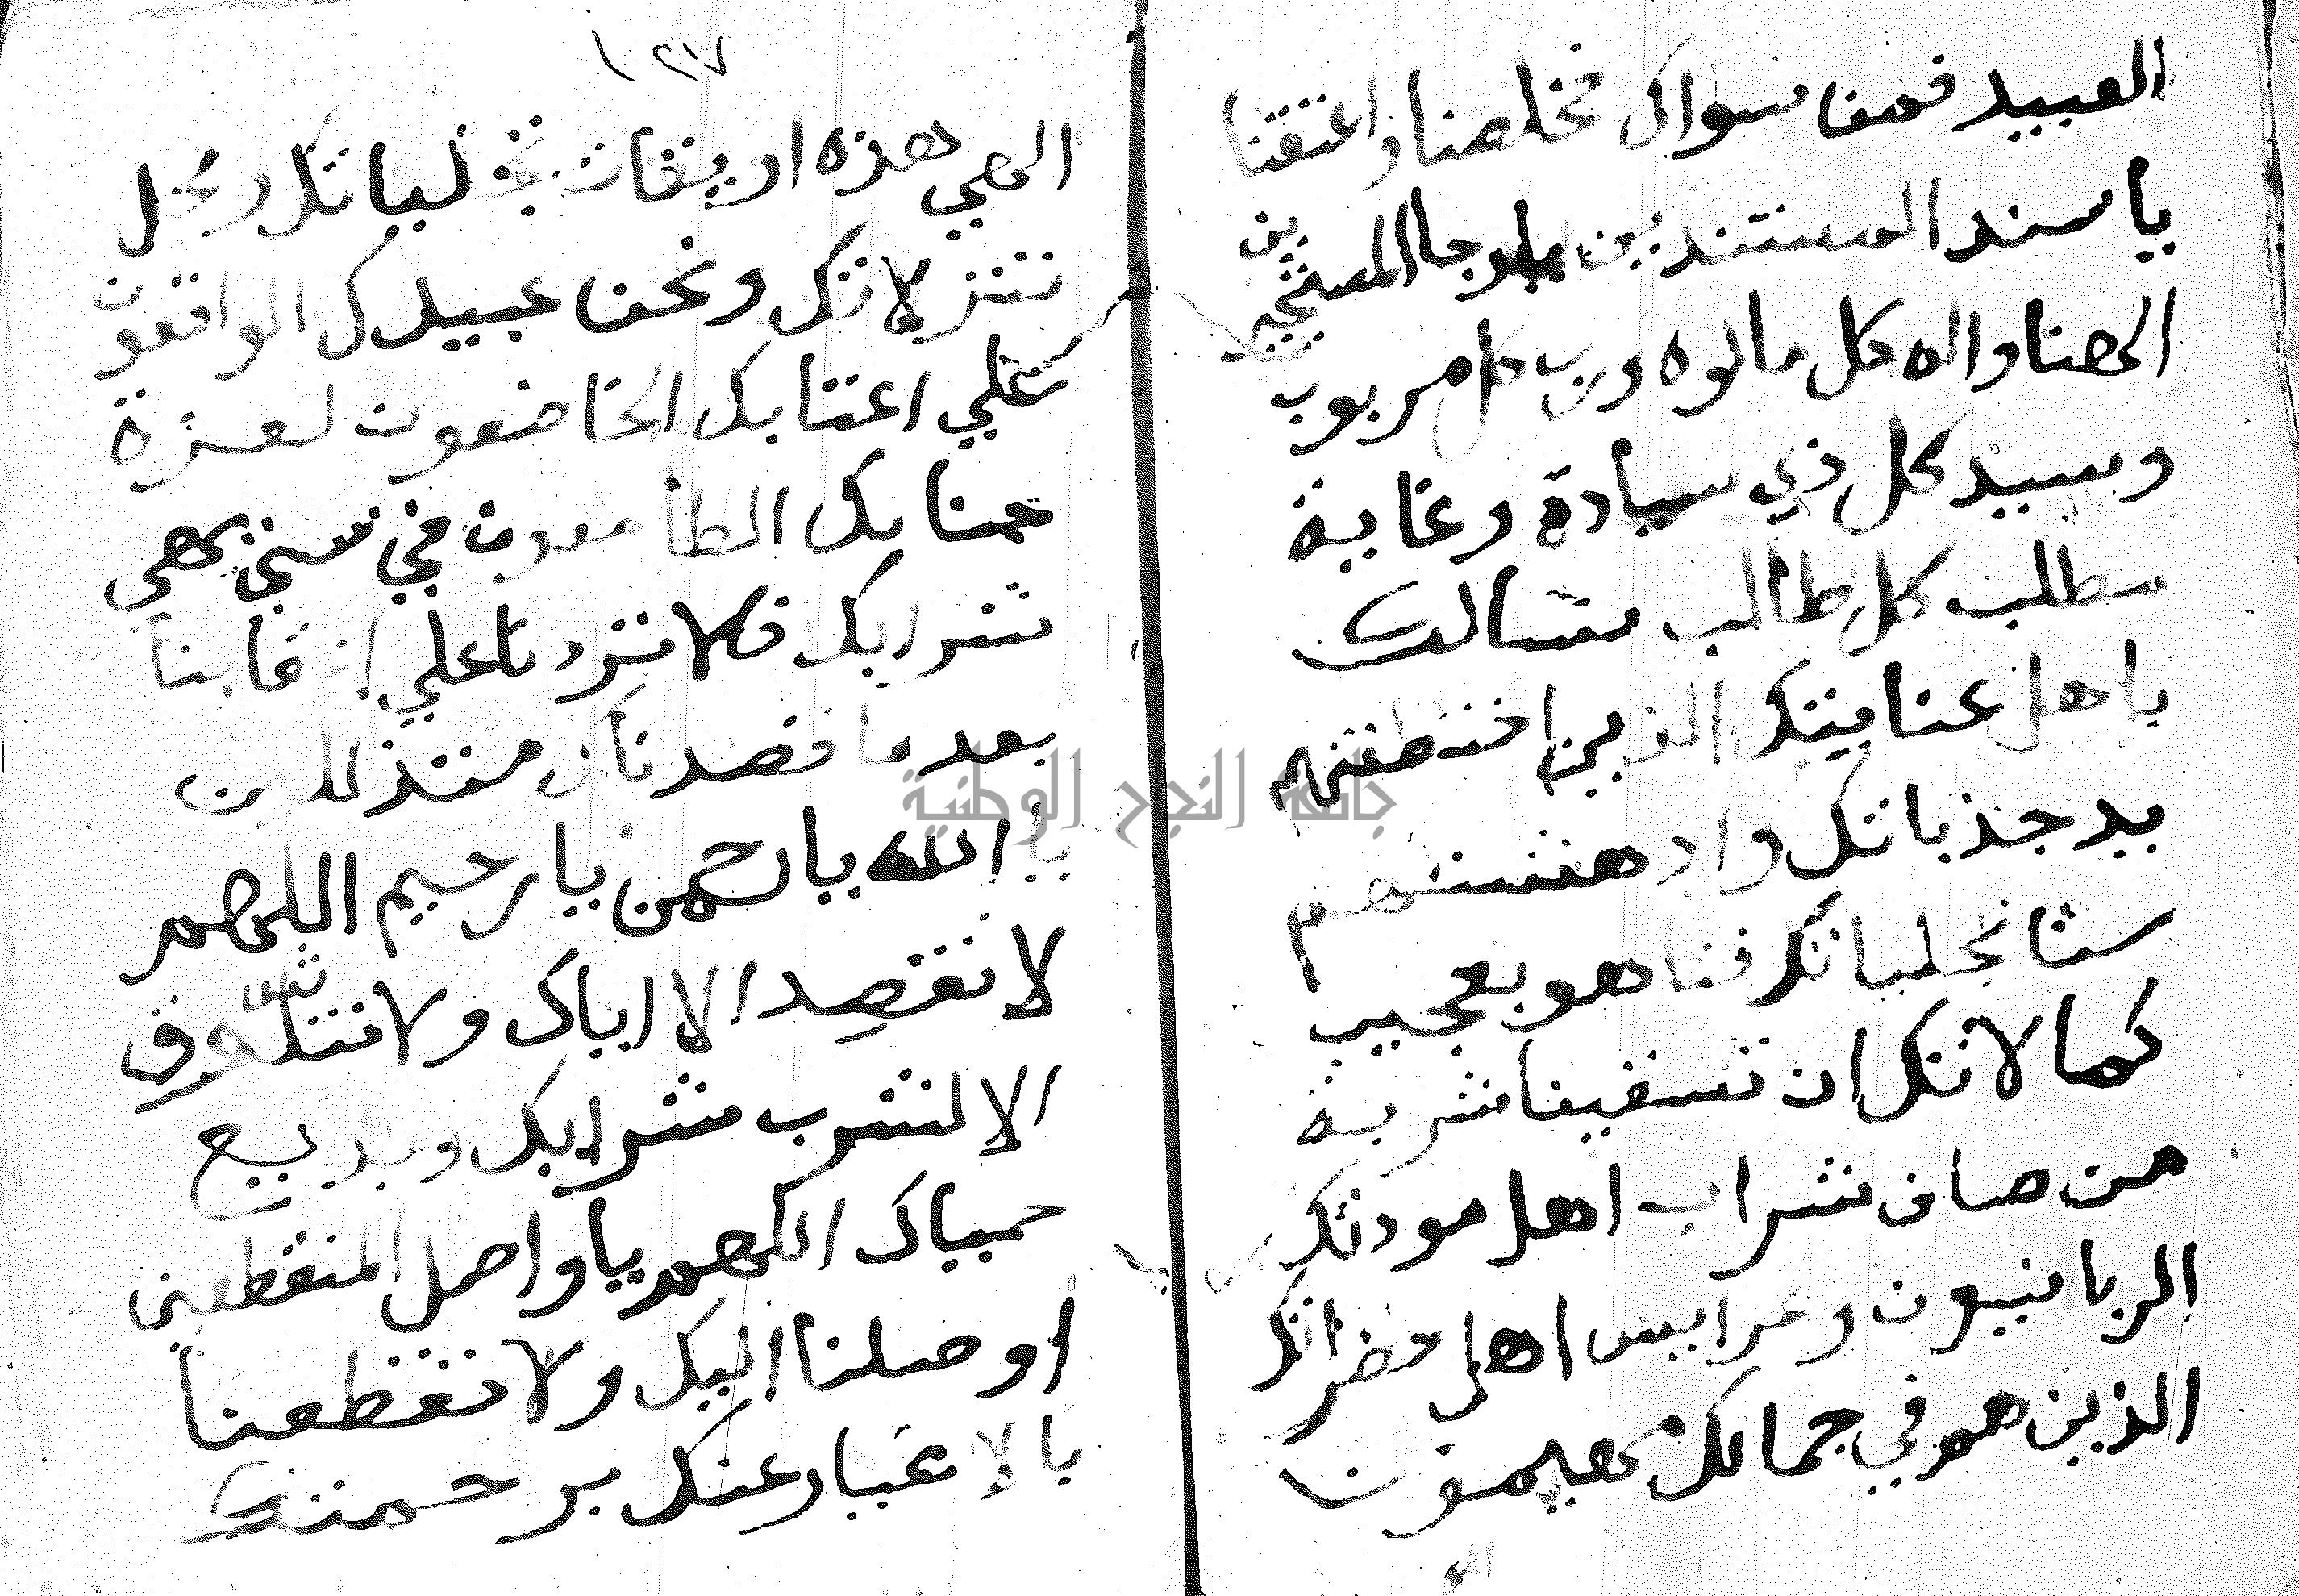 العبيد فمن سواك مخلصنا واعتقنا
يا سند المستندين يا رجا المستجيرين
الهنا واله كل مالوه ورب كل مربوب
وسيد كل ذي سيادة وغاية
مطلب كل طالب نسالك
باهل عنايتك الذين اختطفتهم
يد جذباتك وادهشتهم
سنا تجلياتك فتاهو بعجيب
كمالاتك ان تسقينا شربة
من صافي شراب اهل مودتك
الربانيون وعرايس اهل حضراتك
الذين هم في جمالك مهيمون
الهي
٢٧
الهي هذه اويقات تجلياتك ومحل
تنزلاتك ونحن عبيدك الواقعون
علي اعتابك الخاضعون لعزة
جنابك الطامعون في سني بهي
شرابك فلا تردنا علي اعقابنا
بعد ما قصدناك متذللين
يا الله يا رحمن يا رحيم اللهم
لا نقصد الا اياك ولا نتشوق
الا لشرب شرابك وبديع
حمياك اللهم يا واصل المنقطعين
اوصلنا اليك ولا تقطعنا
بالاغيار عنك برحمتك
جامعة النجاح الوطنية